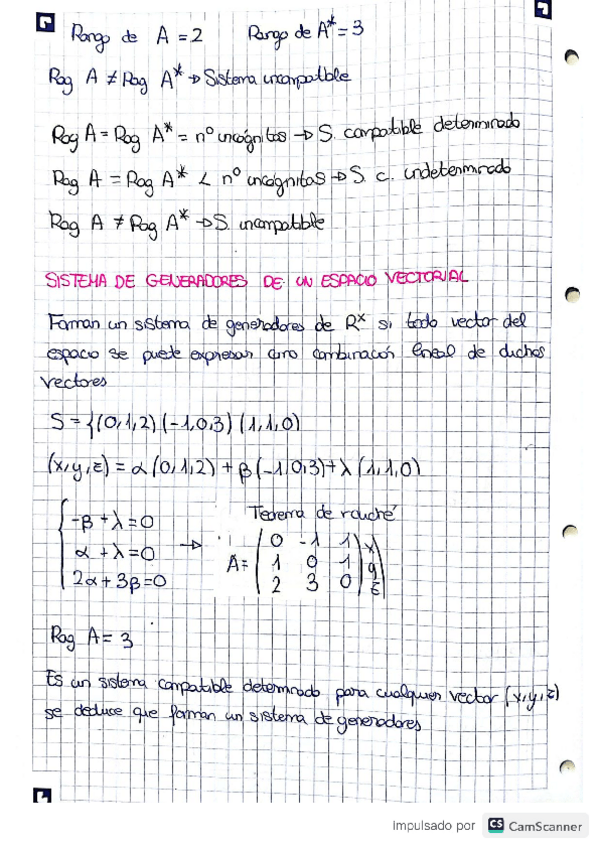 Rango de A = 2 Rango de A* = 3
Rag A ≠ Rag A* → Sistema incompatible
Rag A = Rag A* = nº incógnitas → S. compatible determinado
Rag A = Rag A* < nº incógnitas → S. C. indeterminado
Rag A ≠ Rag A* → S. incompatible
SISTEMA DE GENERADORES DE UN ESPACIO VECTORIAL
Forman un sistema de generadores de Rˣ si todo vector del
espacio se puede expresar como combinación lineal de dichos
vectores
S = {(0,1,2) (-1,0,3) (1,1,0)
(x,y,z) = α (0,1,2) + β (-1,0,3) + λ (1,1,0)
Teorema de rouché
-β + λ = 0
α + λ = 0
2α + 3β = 0
→ A = ( 0 -1 1 | x
1 0 1 | y
2 3 0 | z )
Rag A = 3
Es un sistema compatible determinado para cualquier vector (x,y,z)
se deduce que forman un sistema de generadores
Impulsado por CS CamScanner